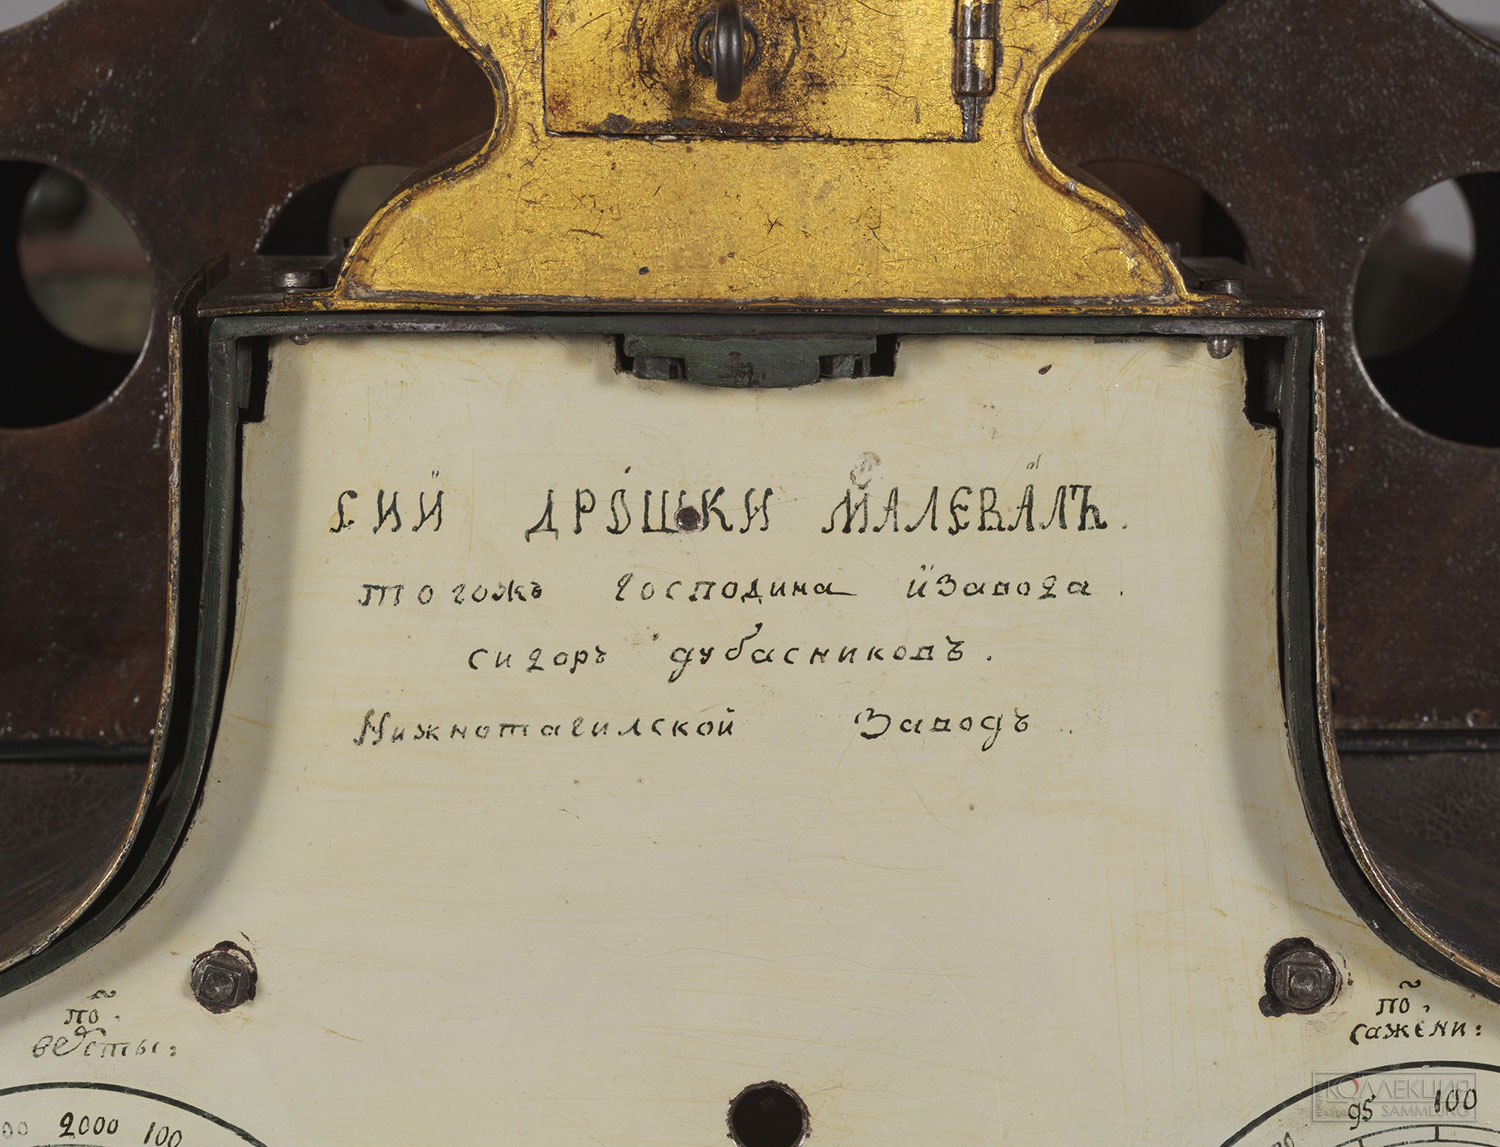 СИЙ ДРОШКИ МАЛЕВАЛЪ.
тогожъ господина ӥзавода.
сидоръ дубасниковъ.
Нижнотагилской Заводъ.
по
версты:
по
сажени:
2000 100
95 100
КОЛЛЕКЦИЯ
SAMMLUNG